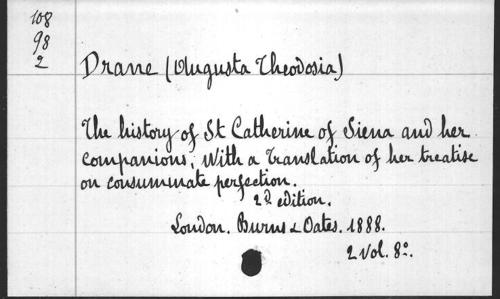 108
98
2
Drane (Augusta Theodosia)
The history of St Catherine of Siena and her
companions, With a Translation of her treatise
on consummate perfection.
2d. edition.
London. Burns & Oates. 1888.
2 Vol. 8°.